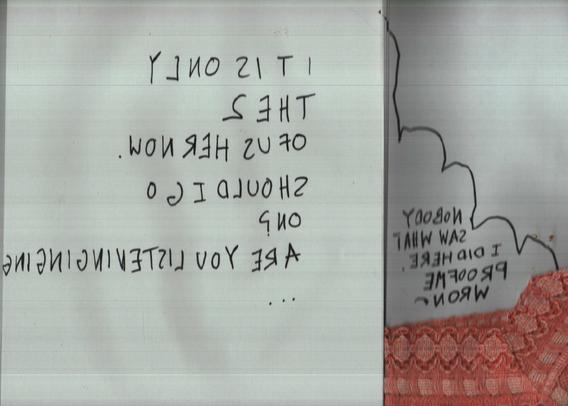 I T IS ONLY
THE S
OF US HER NOW.
SHOULD I GO
ON?
ARE YOU LISTENINGINGING
...
NOBODY
SAW WHAT
I DID HERE.
PROOF ME
WRON~